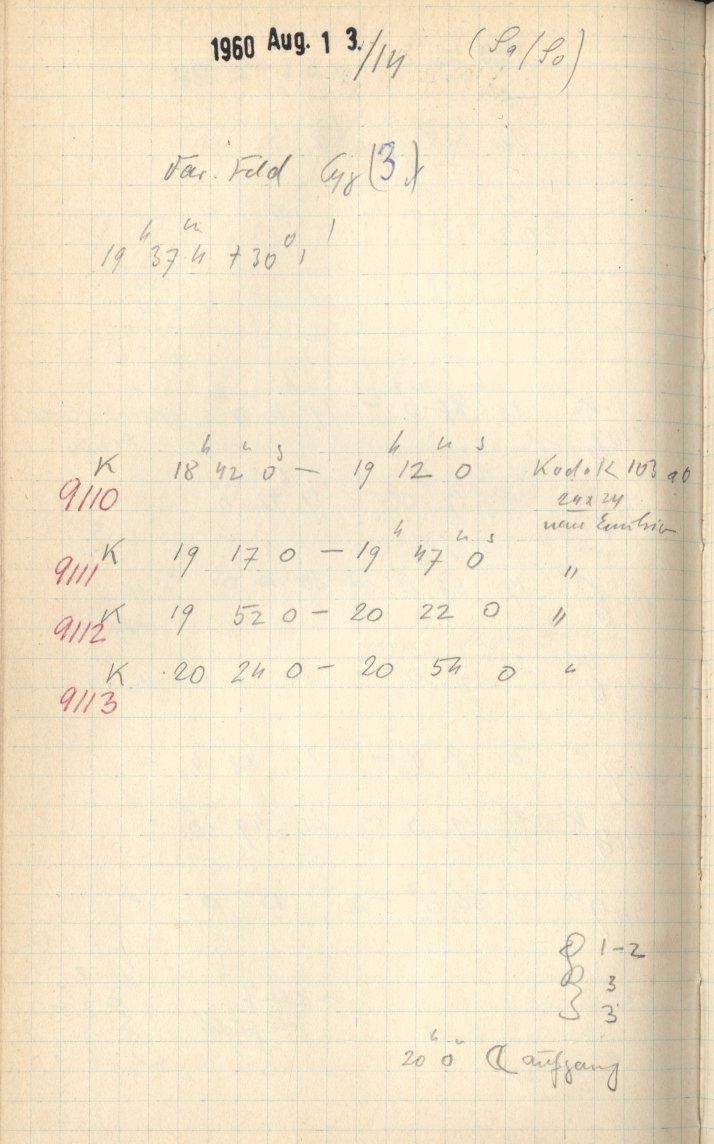 1960 Aug. 1 3./14 (Sa/So)
Var. Feld Cyg (3)
19ʰ 37ᵐ4 +30° 1'
K 18ʰ 42ᵐ 0ˢ — 19ʰ 12ᵐ 0ˢ Kodak 103 a0
9110 24x24
neue Emulsion
K 19 17 0 — 19ʰ 47ᵐ 0ˢ "
9111
K 19 52 0 — 20 22 0 "
9112
K 20 24 0 — 20 54 0 "
9113
1-2
3
3
20ʰ 0ᵐ ☾ aufgang